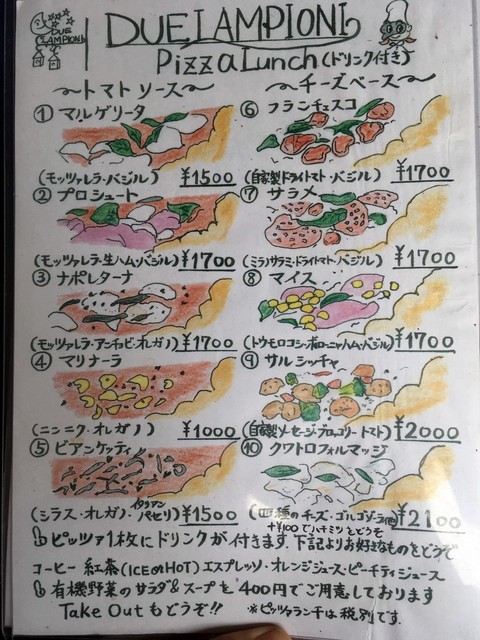 DUE LAMPIONI
DUE LAMPIONI
Pizza Lunch (ドリンク付き)
〜トマトソース〜
① マルゲリータ
(モッツァレラ・バジル) ¥1500
② プロシュート
(モッツァレラ・生ハム・バジル) ¥1700
③ ナポレターナ
(モッツァレラ・アンチョビ・オレガノ) ¥1700
④ マリナーラ
(ニンニク・オレガノ) ¥1000
⑤ ビアンケッティ
(シラス・オレガノ・イタリアンパセリ) ¥1500
〜チーズベース〜
⑥ フランチェスコ
(自家製ドライトマト・バジル) ¥1700
⑦ サラメ
(ミラノサラミ・ドライトマト・バジル) ¥1700
⑧ マイス
(トウモロコシ・ボローニャハム・バジル) ¥1700
⑨ サルシッチャ
(自家製ソーセージ・ブロッコリー・トマト) ¥2000
⑩ クワトロフォルマッジ
(四種のチーズ・ゴルゴンゾーラ他) ¥2100
+¥100でハチミツをどうぞ
ピッツァ1枚にドリンクが付きます。下記よりお好きなものをどうぞ
コーヒー 紅茶(ICE or HOT) エスプレッソ・オレンジジュース・ピーチティジュース
有機野菜のサラダ&スープを400円でご用意しております
Take Outもどうぞ!! ※ピッツァランチは税別です。